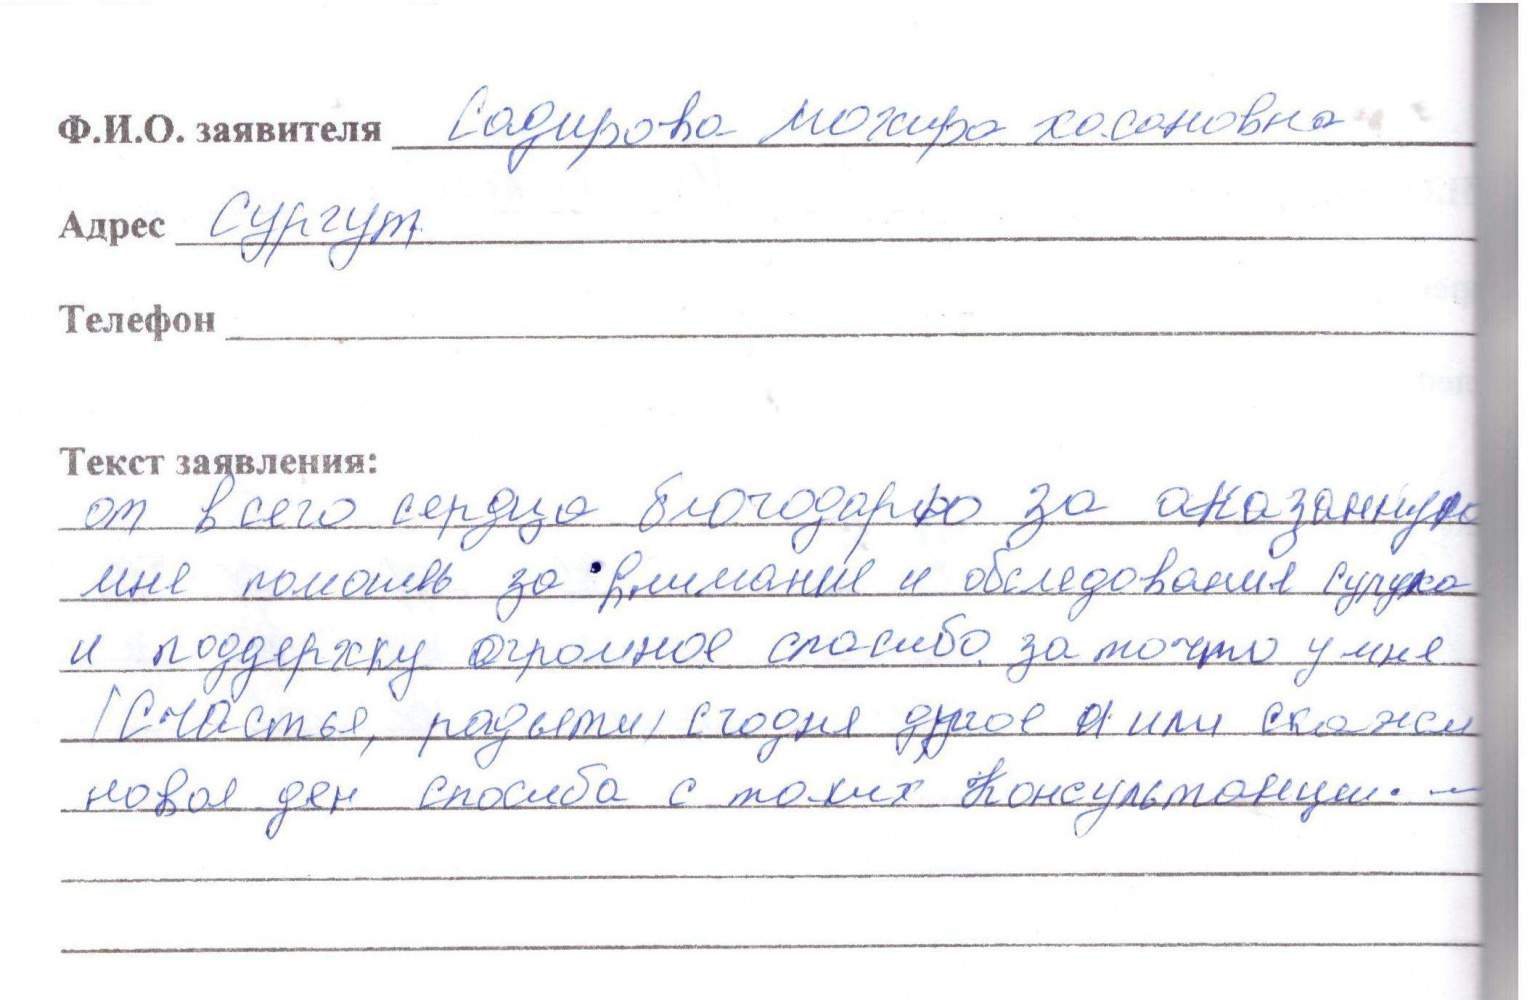 Ф.И.О. заявителя Садирова Мохира хасановна
Адрес Сургут
Телефон
Текст заявления:
от всего сердца благодарю за аказанную
мне помошь за внимание и обследования
и поддержку огромное спасибо за то что у мне
(Счастья, радьяти) сгодня другое а или скажем
новое ден спосиба с таких Консультанции. –